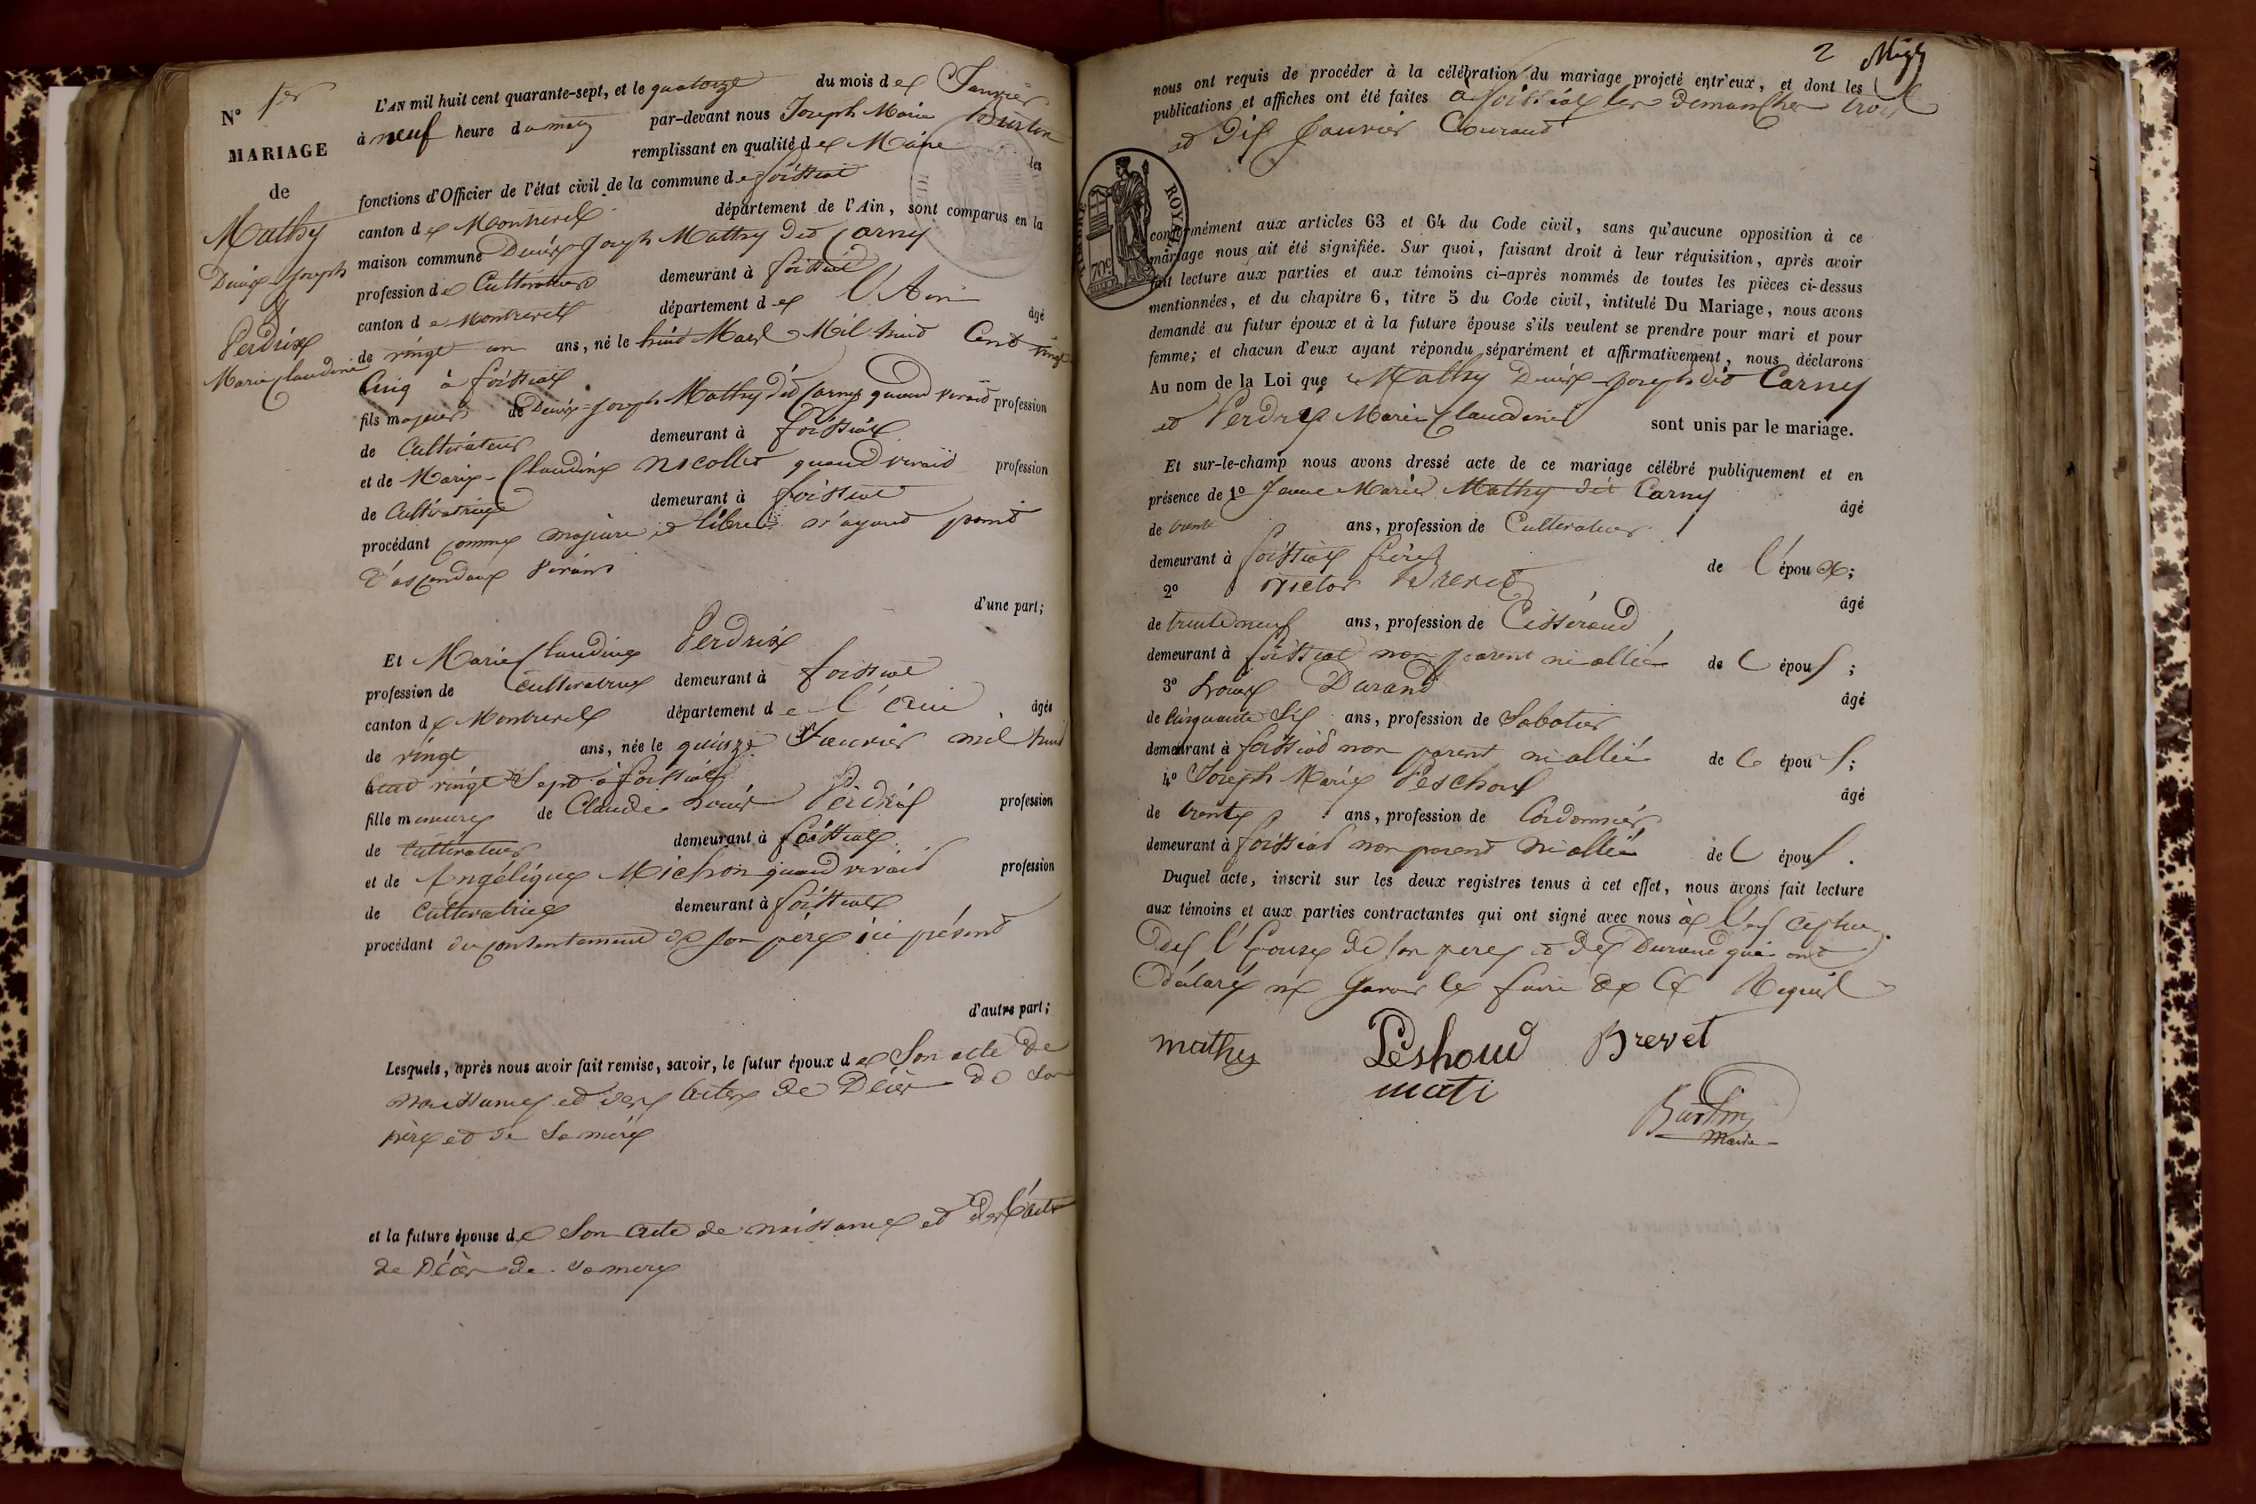 N° 1er
MARIAGE
de
Mathy
Denis Joseph
&
Perdrix
Marie Claudine
L'AN mil huit cent quarante-sept, et le quatorze du mois de Janvier
à neuf heure du matin par-devant nous Joseph Marie Burtin
remplissant en qualité de Maire les
fonctions d'Officier de l'état civil de la commune de foissiat
canton de Montrevel département de l'Ain, sont comparus en la
maison commune Denis Joseph Mathy dit Carny
profession de Cultivateur demeurant à foissiat
canton de Montrevel département de L'Ain âgé
de vingt un ans, né le huit Mars Mil huit Cent vingt
Cinq à foissiat
fils majeur de Denis-Joseph Mathy dit Carny quand vivait profession
de Cultivateur demeurant à foissiat
et de Marie-Claudine Nicollet quand vivait profession
de Cultivatrice demeurant à foissiat
procédant comme majeure et libre n'ayant point
d'ascendant vivant
d'une part;
Et Marie Claudine Perdrix
profession de Cultivatrice demeurant à foissiat
canton de Montrevel département de l'Ain âgée
de vingt ans, née le quinze Janvier mil huit
Cent vingt Sept à foissiat
fille mineure de Claude Louis Perdrix profession
de Cultivateur demeurant à foissiat
et de Angélique Michon quand vivait profession
de Cultivatrice demeurant à foissiat
procédant du consentement de son père ici présent
d'autre part;
Lesquels, après nous avoir fait remise, savoir, le futur époux de Son acte de
naissance et des actes de Décès de son
père et de sa mère
et la future épouse de Son acte de naissance et de l'acte
de Décès de sa mère
2
nous ont requis de procéder à la célébration du mariage projeté entr'eux, et dont les
publications et affiches ont été faites à foissiat les dimanches trois
et dix Janvier Courant
TIMBRE ROYAL
70c
conformément aux articles 63 et 64 du Code civil, sans qu'aucune opposition à ce
mariage nous ait été signifiée. Sur quoi, faisant droit à leur réquisition, après avoir
fait lecture aux parties et aux témoins ci-après nommés de toutes les pièces ci-dessus
mentionnées, et du chapitre 6, titre 5 du Code civil, intitulé Du Mariage, nous avons
demandé au futur époux et à la future épouse s'ils veulent se prendre pour mari et pour
femme; et chacun d'eux ayant répondu séparément et affirmativement, nous déclarons
Au nom de la Loi que Mathy Denis-Joseph dit Carny
et Perdrix Marie Claudine sont unis par le mariage.
Et sur-le-champ nous avons dressé acte de ce mariage célébré publiquement et en
présence de 1° Marie Mathy dit Carny âgé
de trente ans, profession de Cultivateur
demeurant à foissiat frère de l'époux;
2° Victor Brevet âgé
de trente neuf ans, profession de Tisserand
demeurant à foissiat non parent ni allié de l épous;
3° Louis Durand âgé
de Cinquante Six ans, profession de Sabotier
demeurant à foissiat non parent ni allié de l épous;
4° Joseph Marie Peschoud âgé
de trente ans, profession de Cordonnier
demeurant à foissiat non parent ni allié de l épous.
Duquel acte, inscrit sur les deux registres tenus à cet effet, nous avons fait lecture
aux témoins et aux parties contractantes qui ont signé avec nous à l'exception
de l'Epouse de son père et de Durand qui ont
déclaré ne savoir le faire de ce Requis
mathy Peshoud Brevet
mati
Burtin
Maire